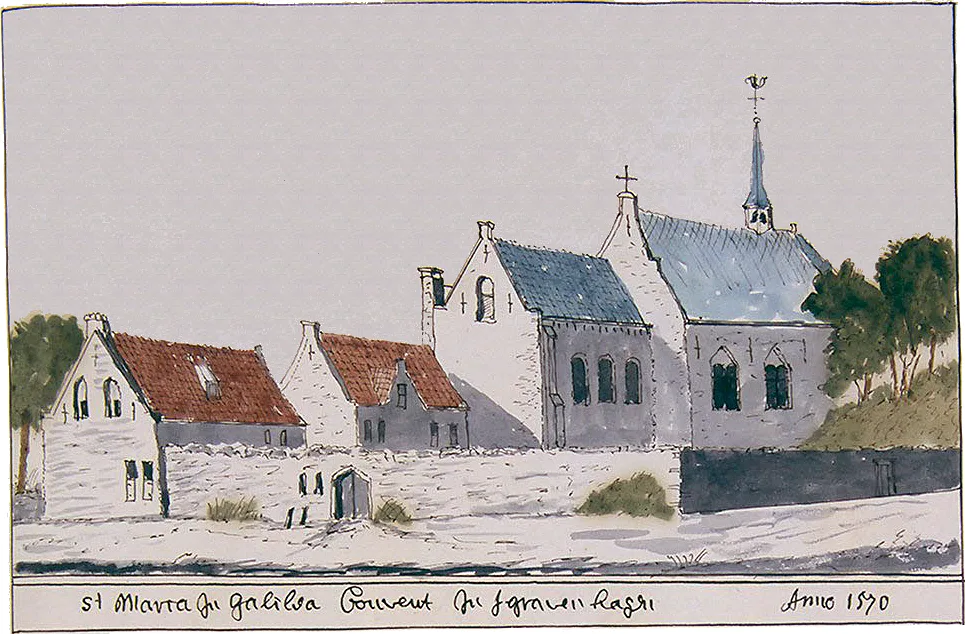 St Maria In Galilea Convent In sgravenhagen Anno 1570